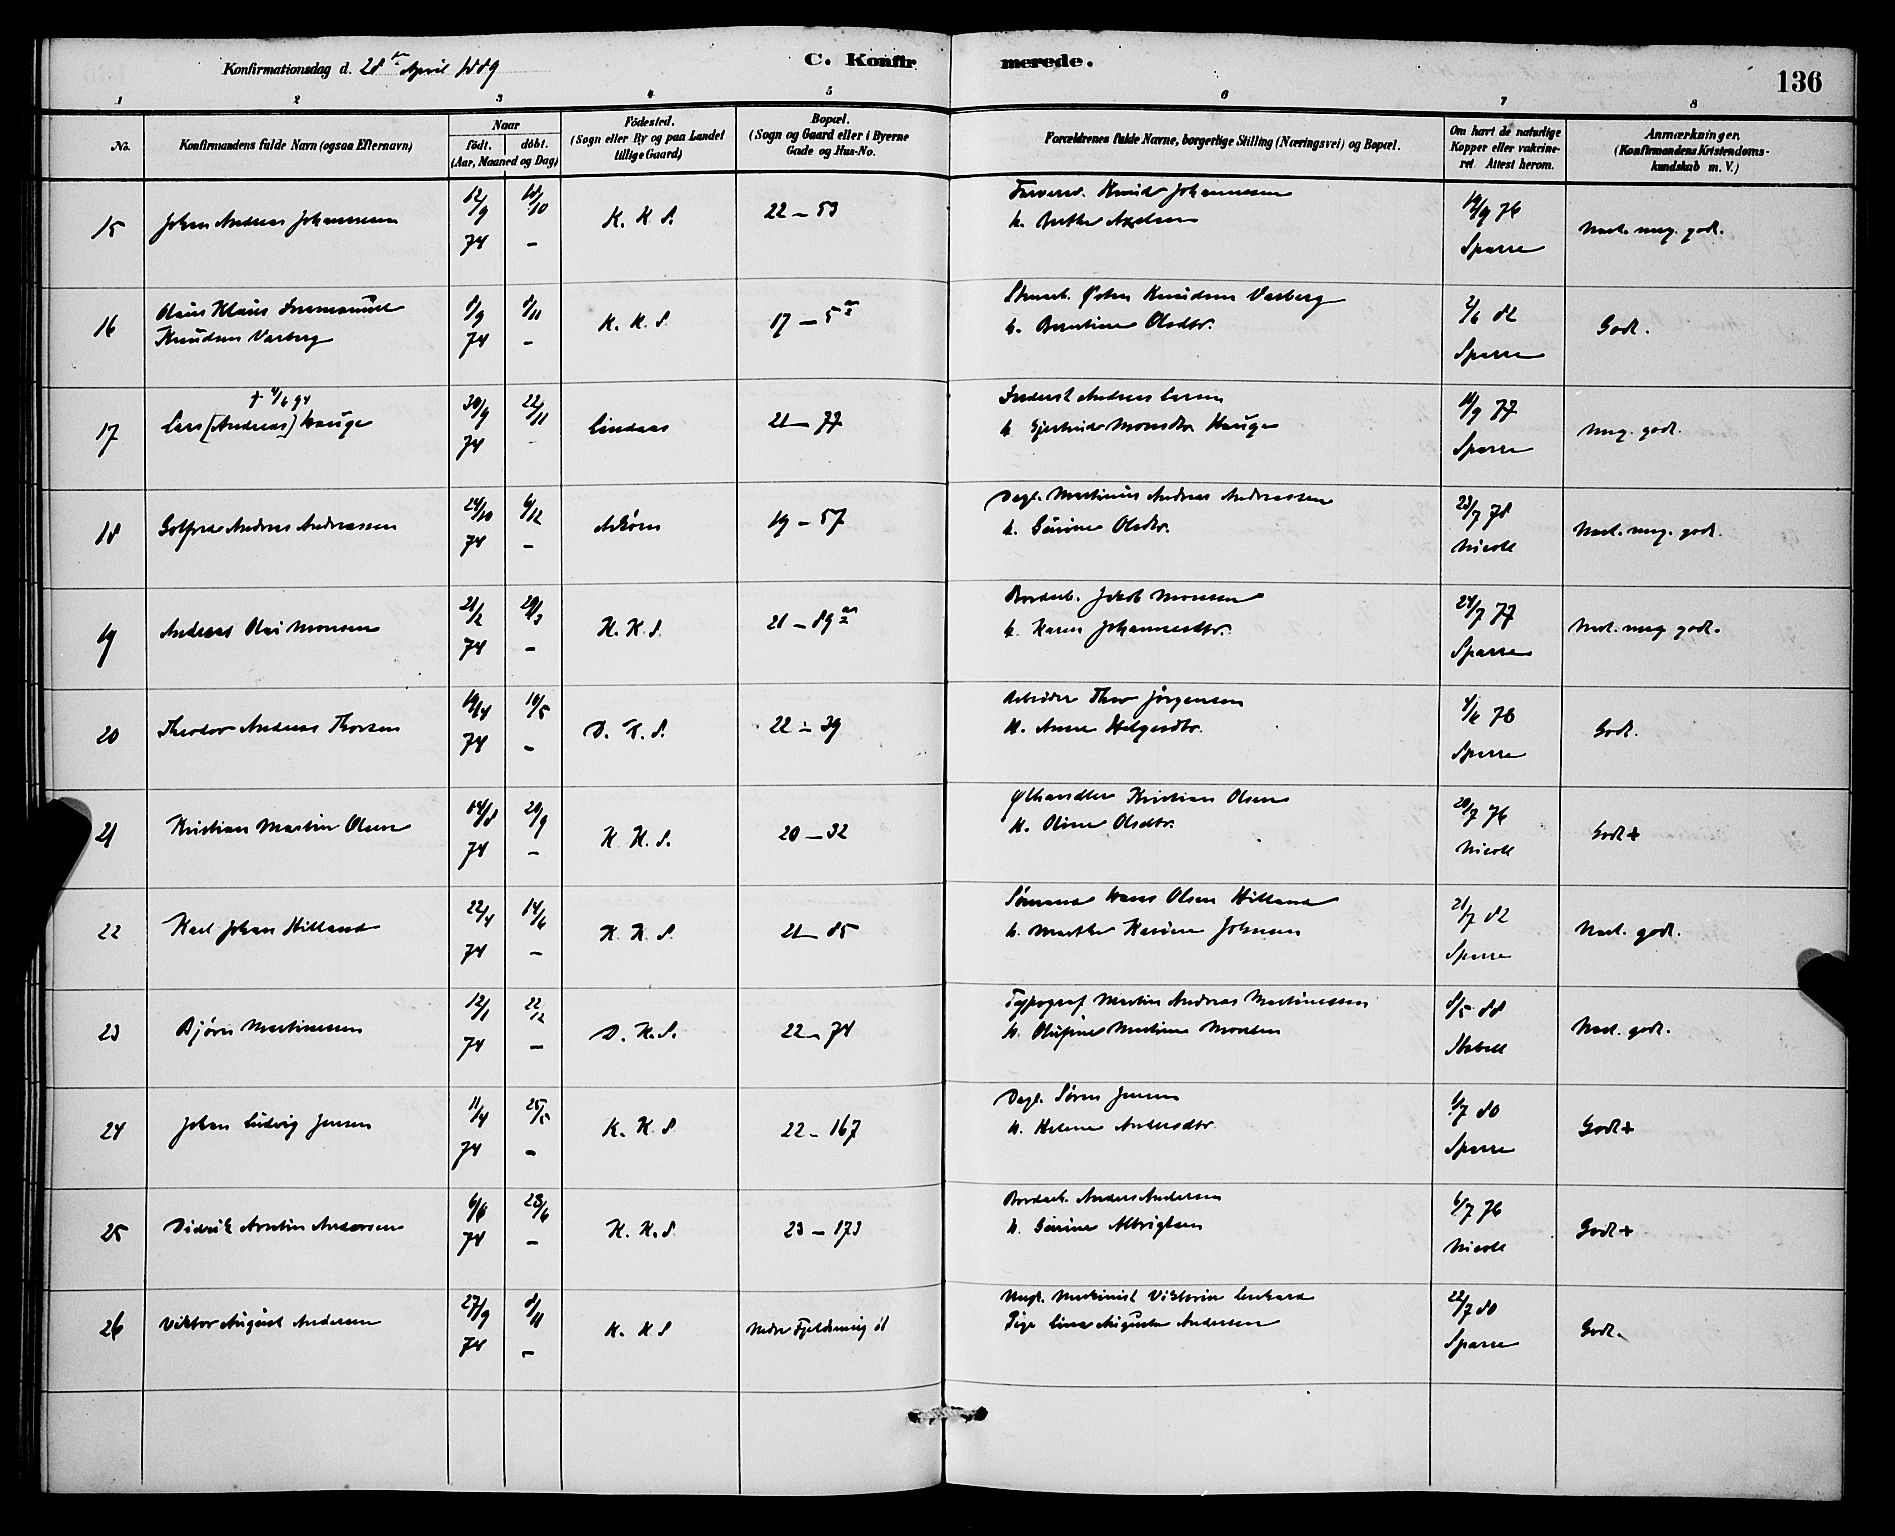 Konfirmationsdag d. 28de April 1889
C. Konfirmerede.
136
1 2 3 4 5 6 7 8
No.
Konfirmandens fulde Navn (ogsaa Efternavn)
Naar
født. døbt.
(Aar, Maaned og Dag)
Fødested.
(Sogn eller By og paa Landet
tillige Gaard)
Bopæl.
(Sogn og Gaard eller i Byerne
Gade og Hus-No.
Forældrenes fulde Navne, borgerlige Stilling (Næringsvei) og Bopæl.
Om havt de naturlige
Kopper eller vakcine-
ret Attest herom.
Anmærkninger.
(Konfirmandens Kristendoms-
kundskab m. V.)
15 Johan Andreas Johannessen 12/9 74 18/10 – K. K. S. 22 – 53
Knud Johannessen
h. Berthe Axelsen
19/9 76 Sparre
Meet. meg. godt.
16 Olaus Klaus
Knudsen Varberg 8/9 74 8/11 – K. K. S. 17 – 5a
Østen Knudsen Varberg
h. Berntine Olsdtr.
2/6 82 Sparre
Godt.
17 † 4/6 94
Lars [Andreas] Hauge 30/9 74 22/11 – Lindaas 21 – 77
Andreas Larsen
h. Gjertrud Monsdtr Hauge
18/9 77 Sparre
Meg. godt.
18 Andreas Andreassen 24/10 74 6/12 – Askøen 19 – 57
Dagl. Martinus Andreas Andreassen
h. Gurine Olsdtr.
23/7 78 Nicoll
Meet. meg. godt.
19 Andreas Olai Monsen 21/2 74 29/3 – K. K. S. 21 – 89a
Bordarb. Jakob Monsen
h. Karen Johannesdtr.
24/7 77 Sparre
Meet. meg godt.
20 Theodor Andreas Thorsen 19/4 74 10/5 – D. K. S. 22 – 39
Arbeider Thor Jørgensen
H. Anne Helgesdtr.
4/6 78 Sparre
Godt.
21 Kristian Martin Olsen 14/8 74 20/9 – K. K. S. 20 – 32
Ølhandler Kristian Olsen
H. Oline Olsdtr.
20/7 76 Nicoll
Godt+
22 Karl Johan Hilland 22/4 74 14/6 – K. K. S. 21 – 85
Sømand Hans Olsen Hilland
h. Marthe Karine Johnsen
21/7 82 Sparre
Meet. godt.
23 Bjørn Martinussen 12/1 74 22/2 – D. K. S. 22 – 74
Typograf Martin Andreas Martinussen
h. Olufine Martine
8/5 88
Meet. godt.
24 Johan Ludvig Jensen 11/4 74 25/5 – K. K. S. 22 – 167
Dagl. Søren Jensen
h. Helene Andersdtr.
6/7 80 Sparre
Godt+
25 Didrik Andersen 6/6 74 28/6 – K. K. S. 23 – 173
Bordarb. Anders Andersen
h. Gurine Albrigtsen
6/7 76 Nicoll
Godt+
26 Viktor August Andersen 27/9 74 8/11 – K. K. S.
Ungk. Maskinist Viktorin
Pige Lina Augusta Andersen
22/7 80 Sparre
Godt.